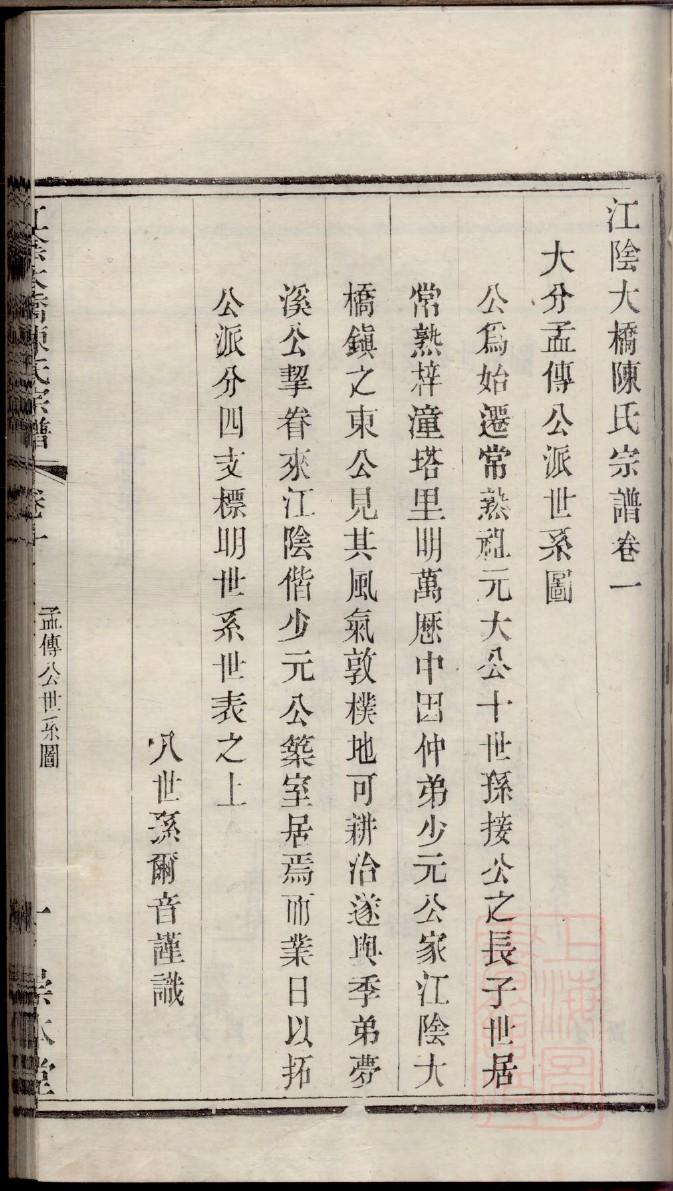 江陰大橋陳氏宗譜卷一
大分孟傳公派世系圖
公爲始遷常熟祖元大公十世孫接公之長子世居
常熟梓潼塔里明萬厯中因仲弟少元公家江陰大
橋鎭之東公見其風氣敦樸地可耕治遂與季弟夢
溪公挈眷來江陰偕少元公築室居焉而業日以拓
公派分四支標明世系世表之上
八世孫爾音謹識
江陰大橋陳氏宗譜
孟傳公世系圖
一
崇本堂